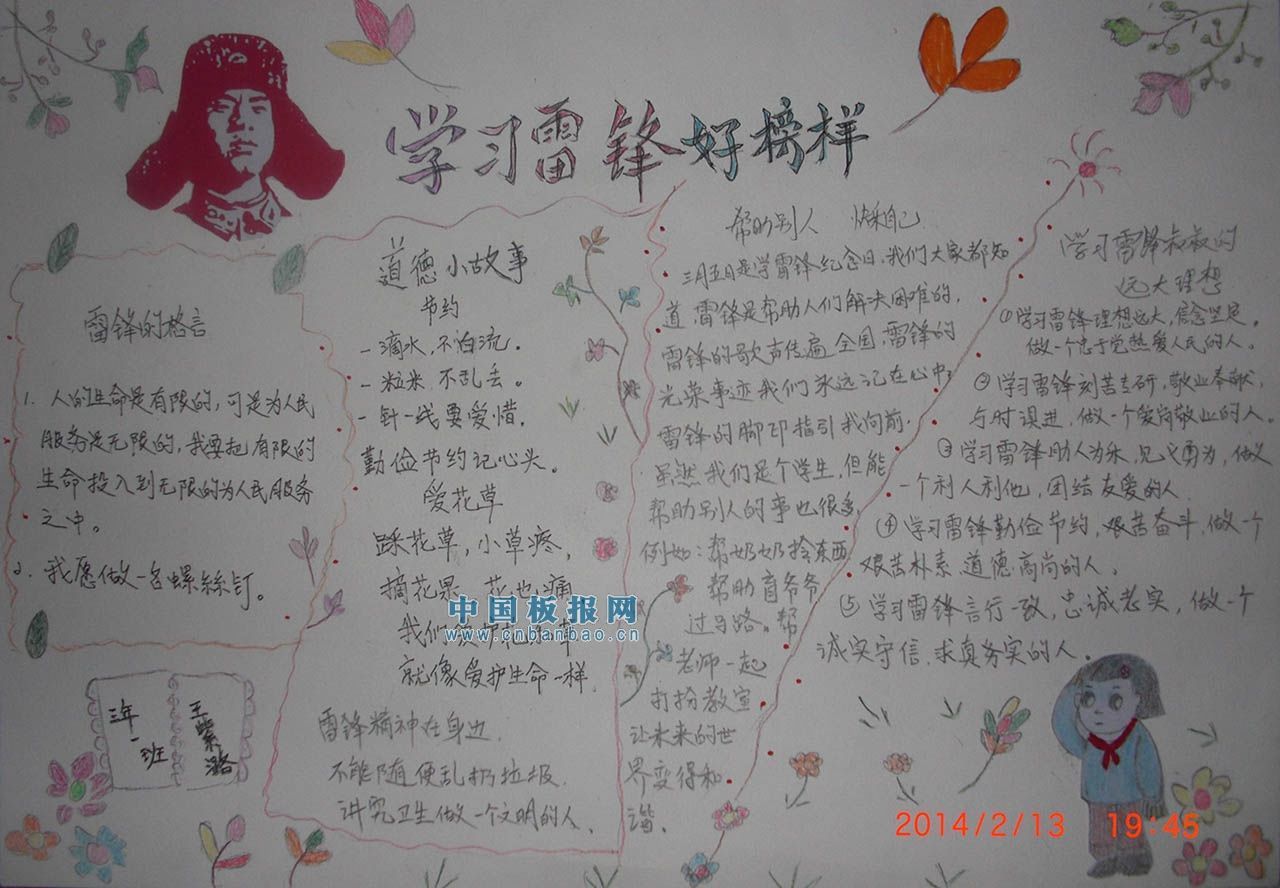 学习雷锋好榜样
雷锋的格言
1. 人的生命是有限的,可是为人民
服务是无限的,我要把有限的
生命投入到无限的为人民服务
之中。
2. 我愿做一名螺丝钉。
三年
一班
王紫潞
道德小故事
节约
一滴水,不白流。
一粒米,不乱丢。
一针一线要爱惜,
勤俭节约记心头。
爱花草
踩花草,小草疼,
摘花果 花也痛
我们
就像爱护生命一样.
雷锋精神在身边.
不能随便乱扔垃圾.
讲究卫生做一个文明的人.
帮助别人 快乐自己
三月五日是学雷锋纪念日,我们大家都知
道,雷锋是帮助人们解决困难的.
雷锋的歌声传遍全国,雷锋的
光荣事迹我们永远记在心中,
雷锋的脚印指引我向前.
虽然我们是个学生,但能
帮助别人的事也很多,
例如:帮奶奶拎东西
帮助盲爷爷
过马路。帮
老师一起
打扮教室
让未来的世
界变得和
谐.
学习雷锋叔叔的
远大理想
①学习雷锋理想远大,信念坚定.
做一个忠于党热爱人民的人。
②学习雷锋刻苦专研,敬业奉献,
与时俱进,做一个爱岗敬业的人。
③学习雷锋助人为乐,见义勇为,做
一个利人利他,团结友爱的人.
④学习雷锋勤俭节约,艰苦奋斗,做一个
艰苦朴素 道德高尚的人.
⑤学习雷锋言行一致,忠诚老实,做一个
诚实守信.求真务实的人.
中国板报网
www.cnbanbao.cn
2014/2/13 19:45